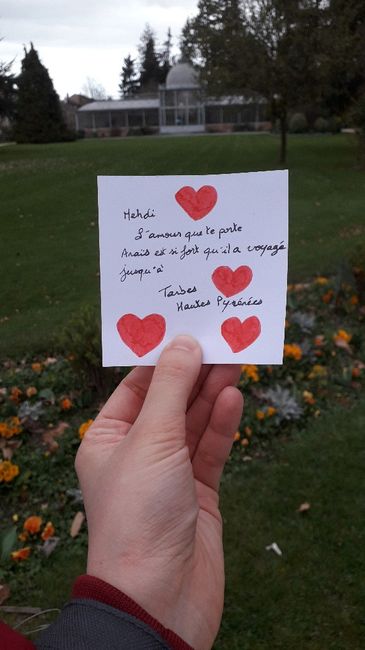 Mehdi
L'amour que te porte
Anaïs est si fort qu'il a voyagé
jusqu'à
Tarbes
Hautes Pyrénées